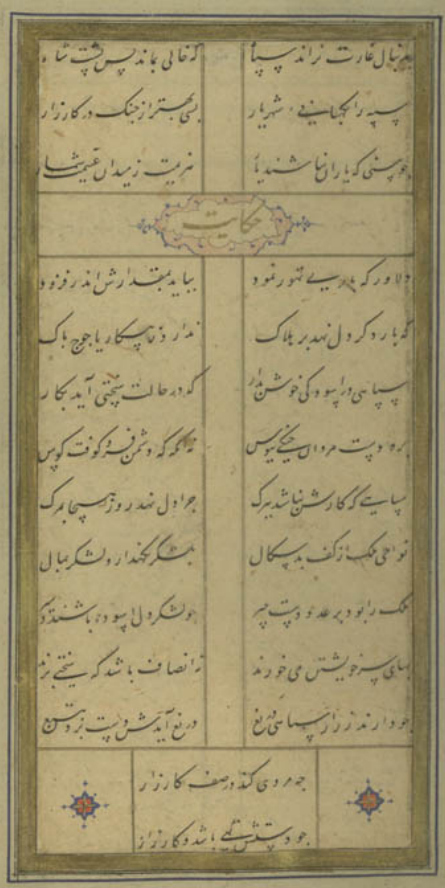 بدنبال غارت نراند سپاه که خالی بماند پس پشت شاه
سپه را نگهبانی شهریار بسی بهتر از جنک در کارزار
چو بینی که یاران نباشند یار هزیمت ز میدان غنیمت شمار
حکایت
دلاور که باری تهور نمود بباید بمقدارش اندر فزود
که بار دکر دل نهد بر هلاک ندارد ز پیکار یاجوج باک
سپاهی در اسودکی خوش بدار که در حالت سختی آید بکار
دست مردان جنکی ببوس نه آنکه که دشمن فرو کوفت کوس
سپاهی که کارش نباشد ببرک چرا دل نهد روز هیجا بمرک
نواحی ملک از کف بدسکال بلشکر نکه دار و لشکر بمال
ملک را بود بر عدو دست چیر چو لشکر دل اسوده باشند و
بهای سر خویشتن می خورند نه انصاف باشد که سختی برند
چو دارند زر از سپاهی دریغ دریغ آیدش دست بردن بتیغ
چه مردی کند در صف کارزار
چو دستش تهی باشد و کارزار